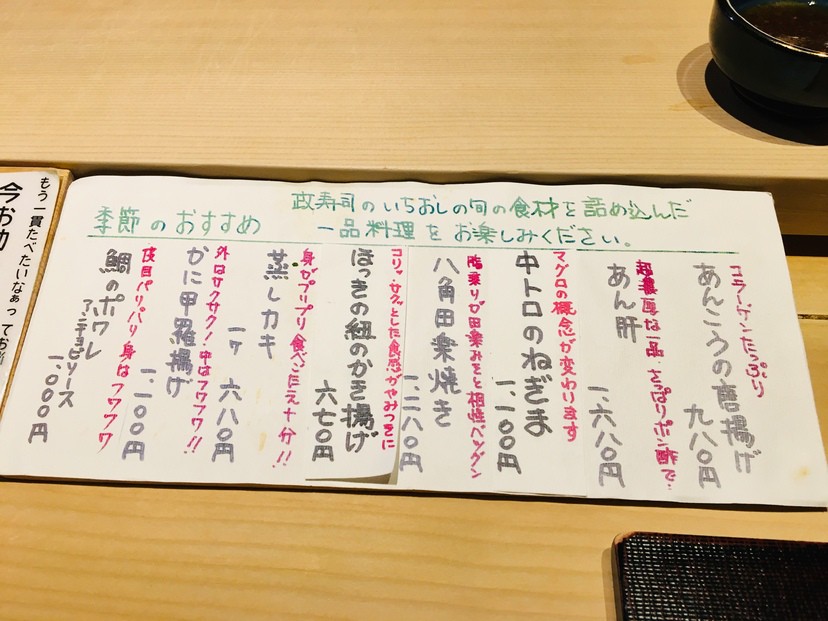 政寿司のいちおしの旬の食材を詰め込んだ
一品料理をお楽しみください。
季節のおすすめ
コラーゲンたっぷり
あんこうの唐揚げ
九八〇円
超濃厚な一品。さっぱりポン酢で。
あん肝
一、六八〇円
マグロの概念が変わります
中トロのねぎま
一、一〇〇円
脂乗りが田楽みそと相性バツグン
八角田楽焼き
一、二八〇円
コリッ、サクッとした食感がやみつきに
ほっきの紐のかき揚げ
六七〇円
身がプリプリ食べごたえ十分!!
蒸しカキ
一ヶ 六八〇円
外はサクサク!中はフワフワ!!
かに甲羅揚げ
一、一〇〇円
皮目パリパリ身はフワフワ
鯛のポワレ
アンチョビソース
一、〇〇〇円
もう一貫たべたいなぁって